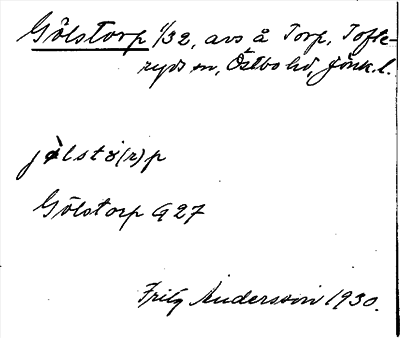 Gölstorp 1/32, avs å Torp, Tofte-
ryds sn, Östbo hd, Jönk. l.
jölstå(r)p
Gölstorp G 27
Fritz Andersson 1930.